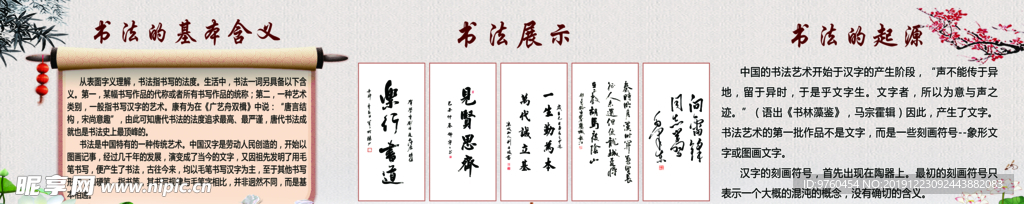 书法的基本含义
从表面字义理解，书法指书写的法度。生活中，书法一词另具备以下含
义。第一，某幅书写作品的代称或者所有书写作品的统称；第二，一种艺术
类别，一般指书写汉字的艺术。康有为在《广艺舟双楫》中说：“唐言结
构，宋尚意趣”，由此可知唐代书法的法度追求最高、最严谨，唐代书法成
就也是书法史上最顶峰的。
书法是中国特有的一种传统艺术。中国汉字是劳动人民创造的，开始以
图画记事，经过几千年的发展，演变成了当今的文字，又因祖先发明了用毛
笔书写，便产生了书法，古往今来，均以毛笔书写汉字为主，至于其他书写
书法展示
樂行書道
見賢思齊
一生勤為本
萬代誠立基
秦時明月漢時關萬里長
征人未還但使龍城飛將
在不教胡馬度陰山
书法的起源
中国的书法艺术开始于汉字的产生阶段，“声不能传于异
地，留于异时，于是乎文字生。文字者，所以为意与声之
迹。”（语出《书林藻鉴》，马宗霍辑）因此，产生了文字。
书法艺术的第一批作品不是文字，而是一些刻画符号--象形文
字或图画文字。
汉字的刻画符号，首先出现在陶器上。最初的刻画符号只
表示一个大概的混沌的概念，没有确切的含义。
昵享网 www.nipic.cn
ID:9760454 NO:20191223092443882083